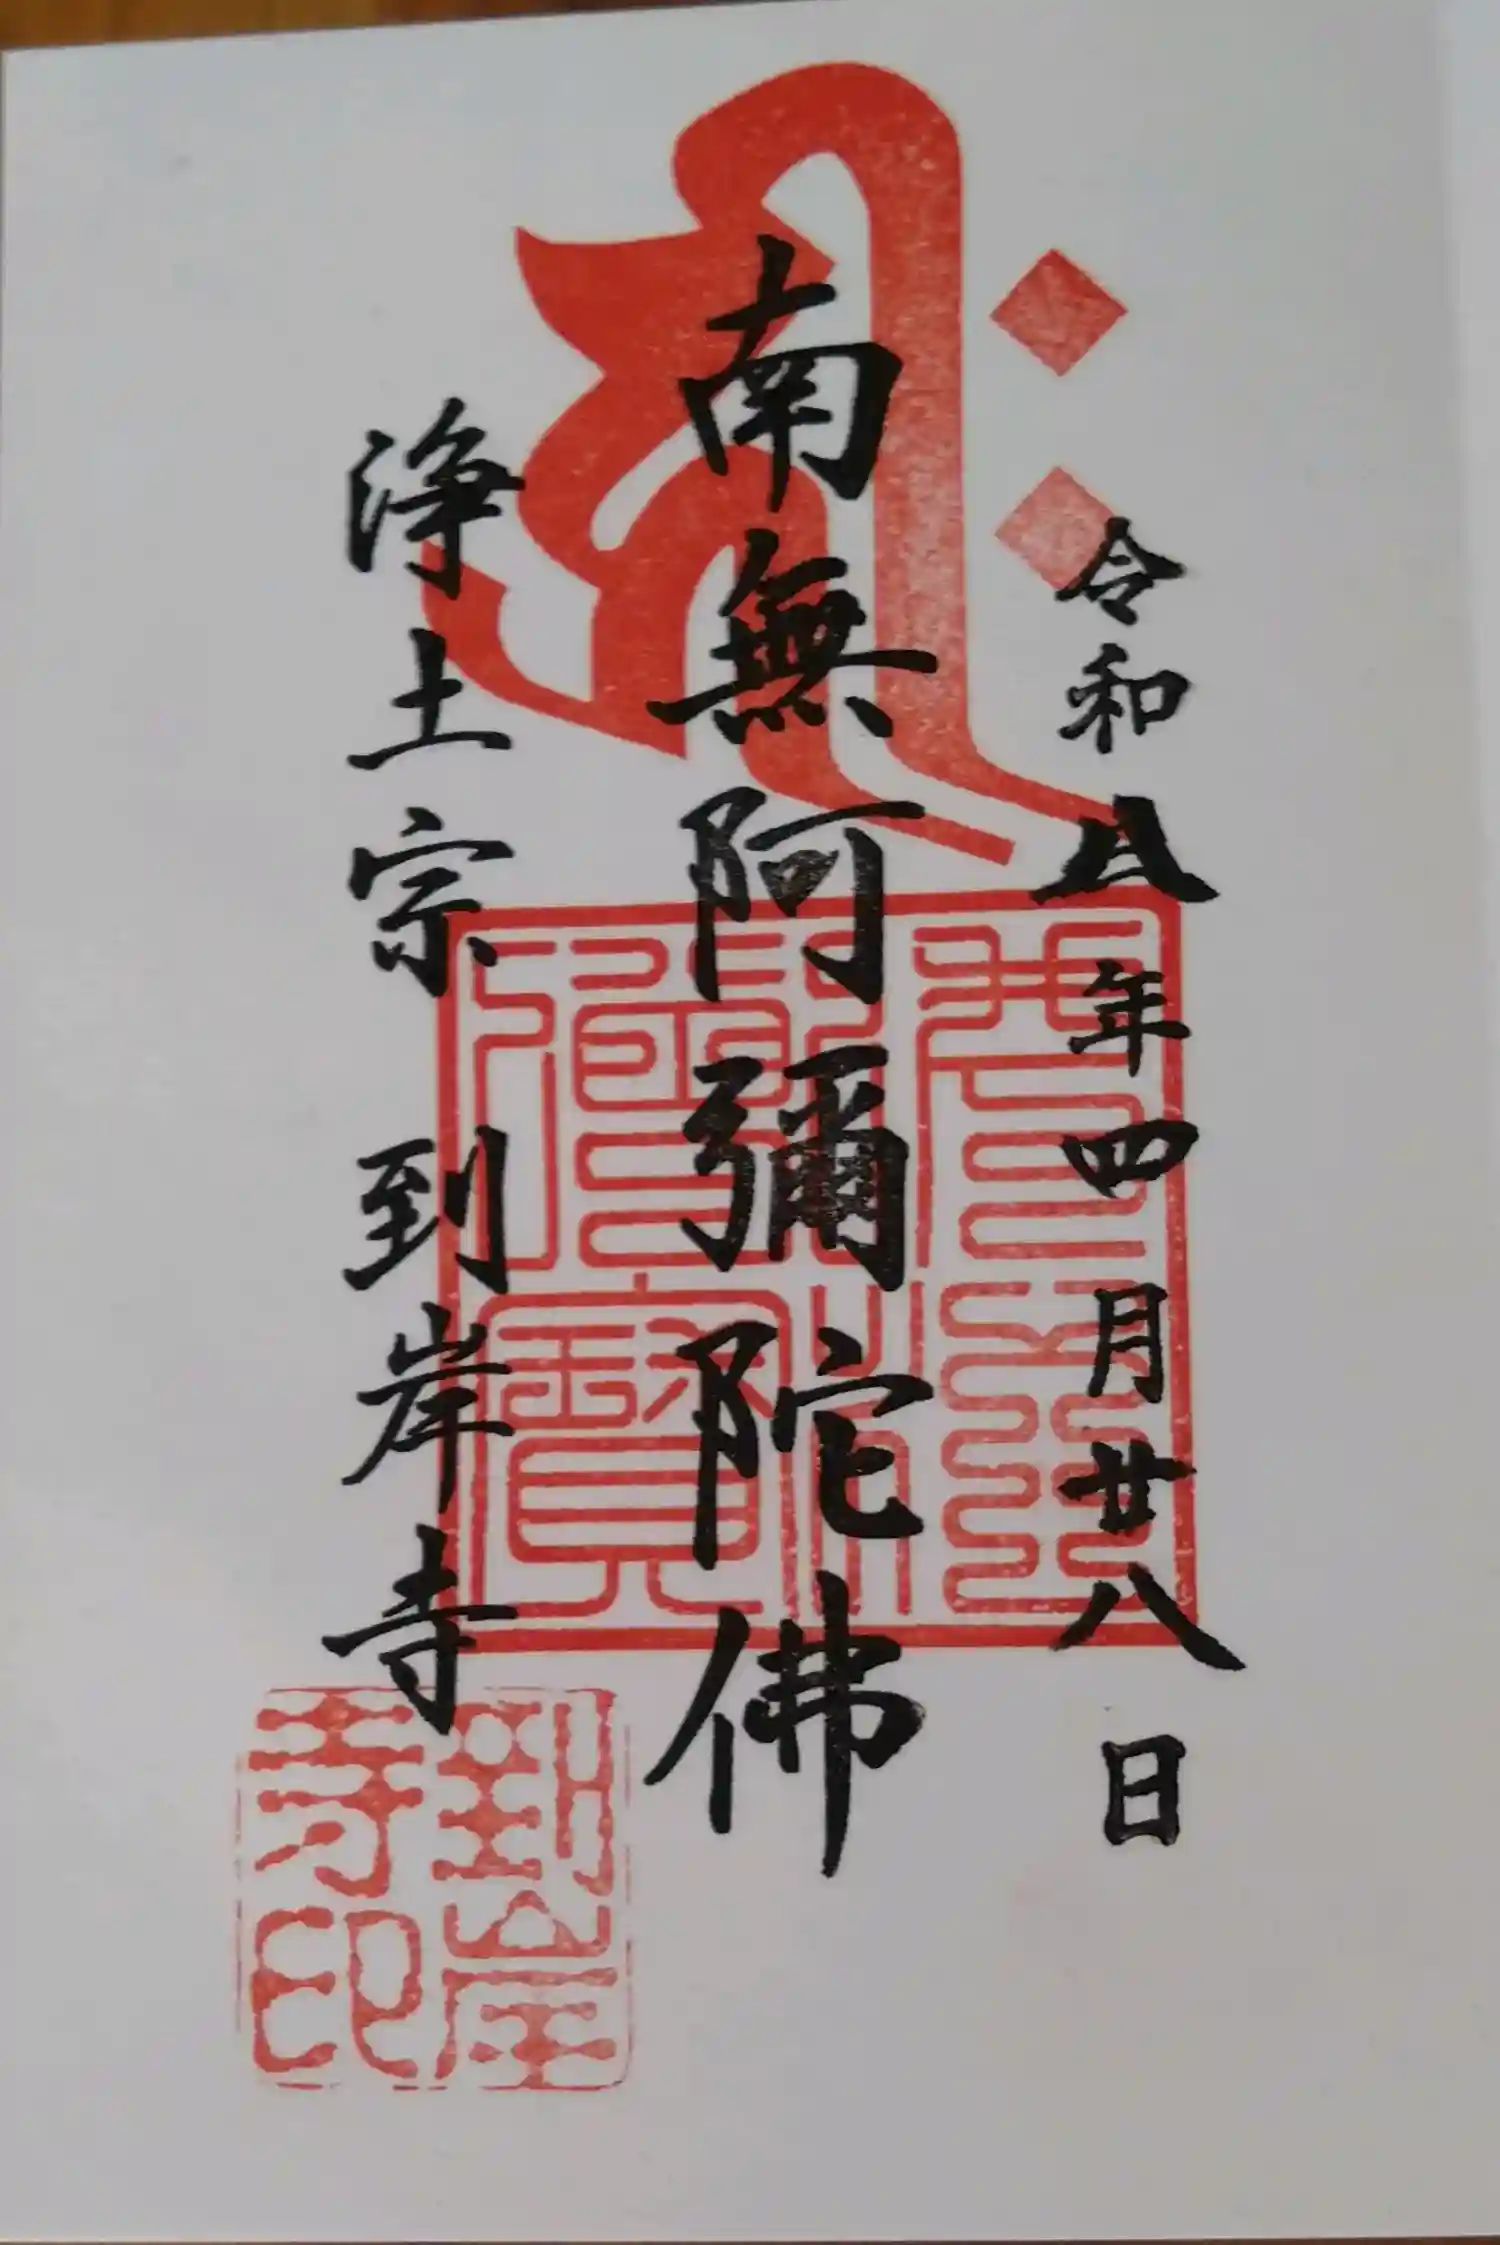 令和八年四月廿八日
南無阿彌陀佛
浄土宗 到岸寺
佛法僧寶
到岸寺印